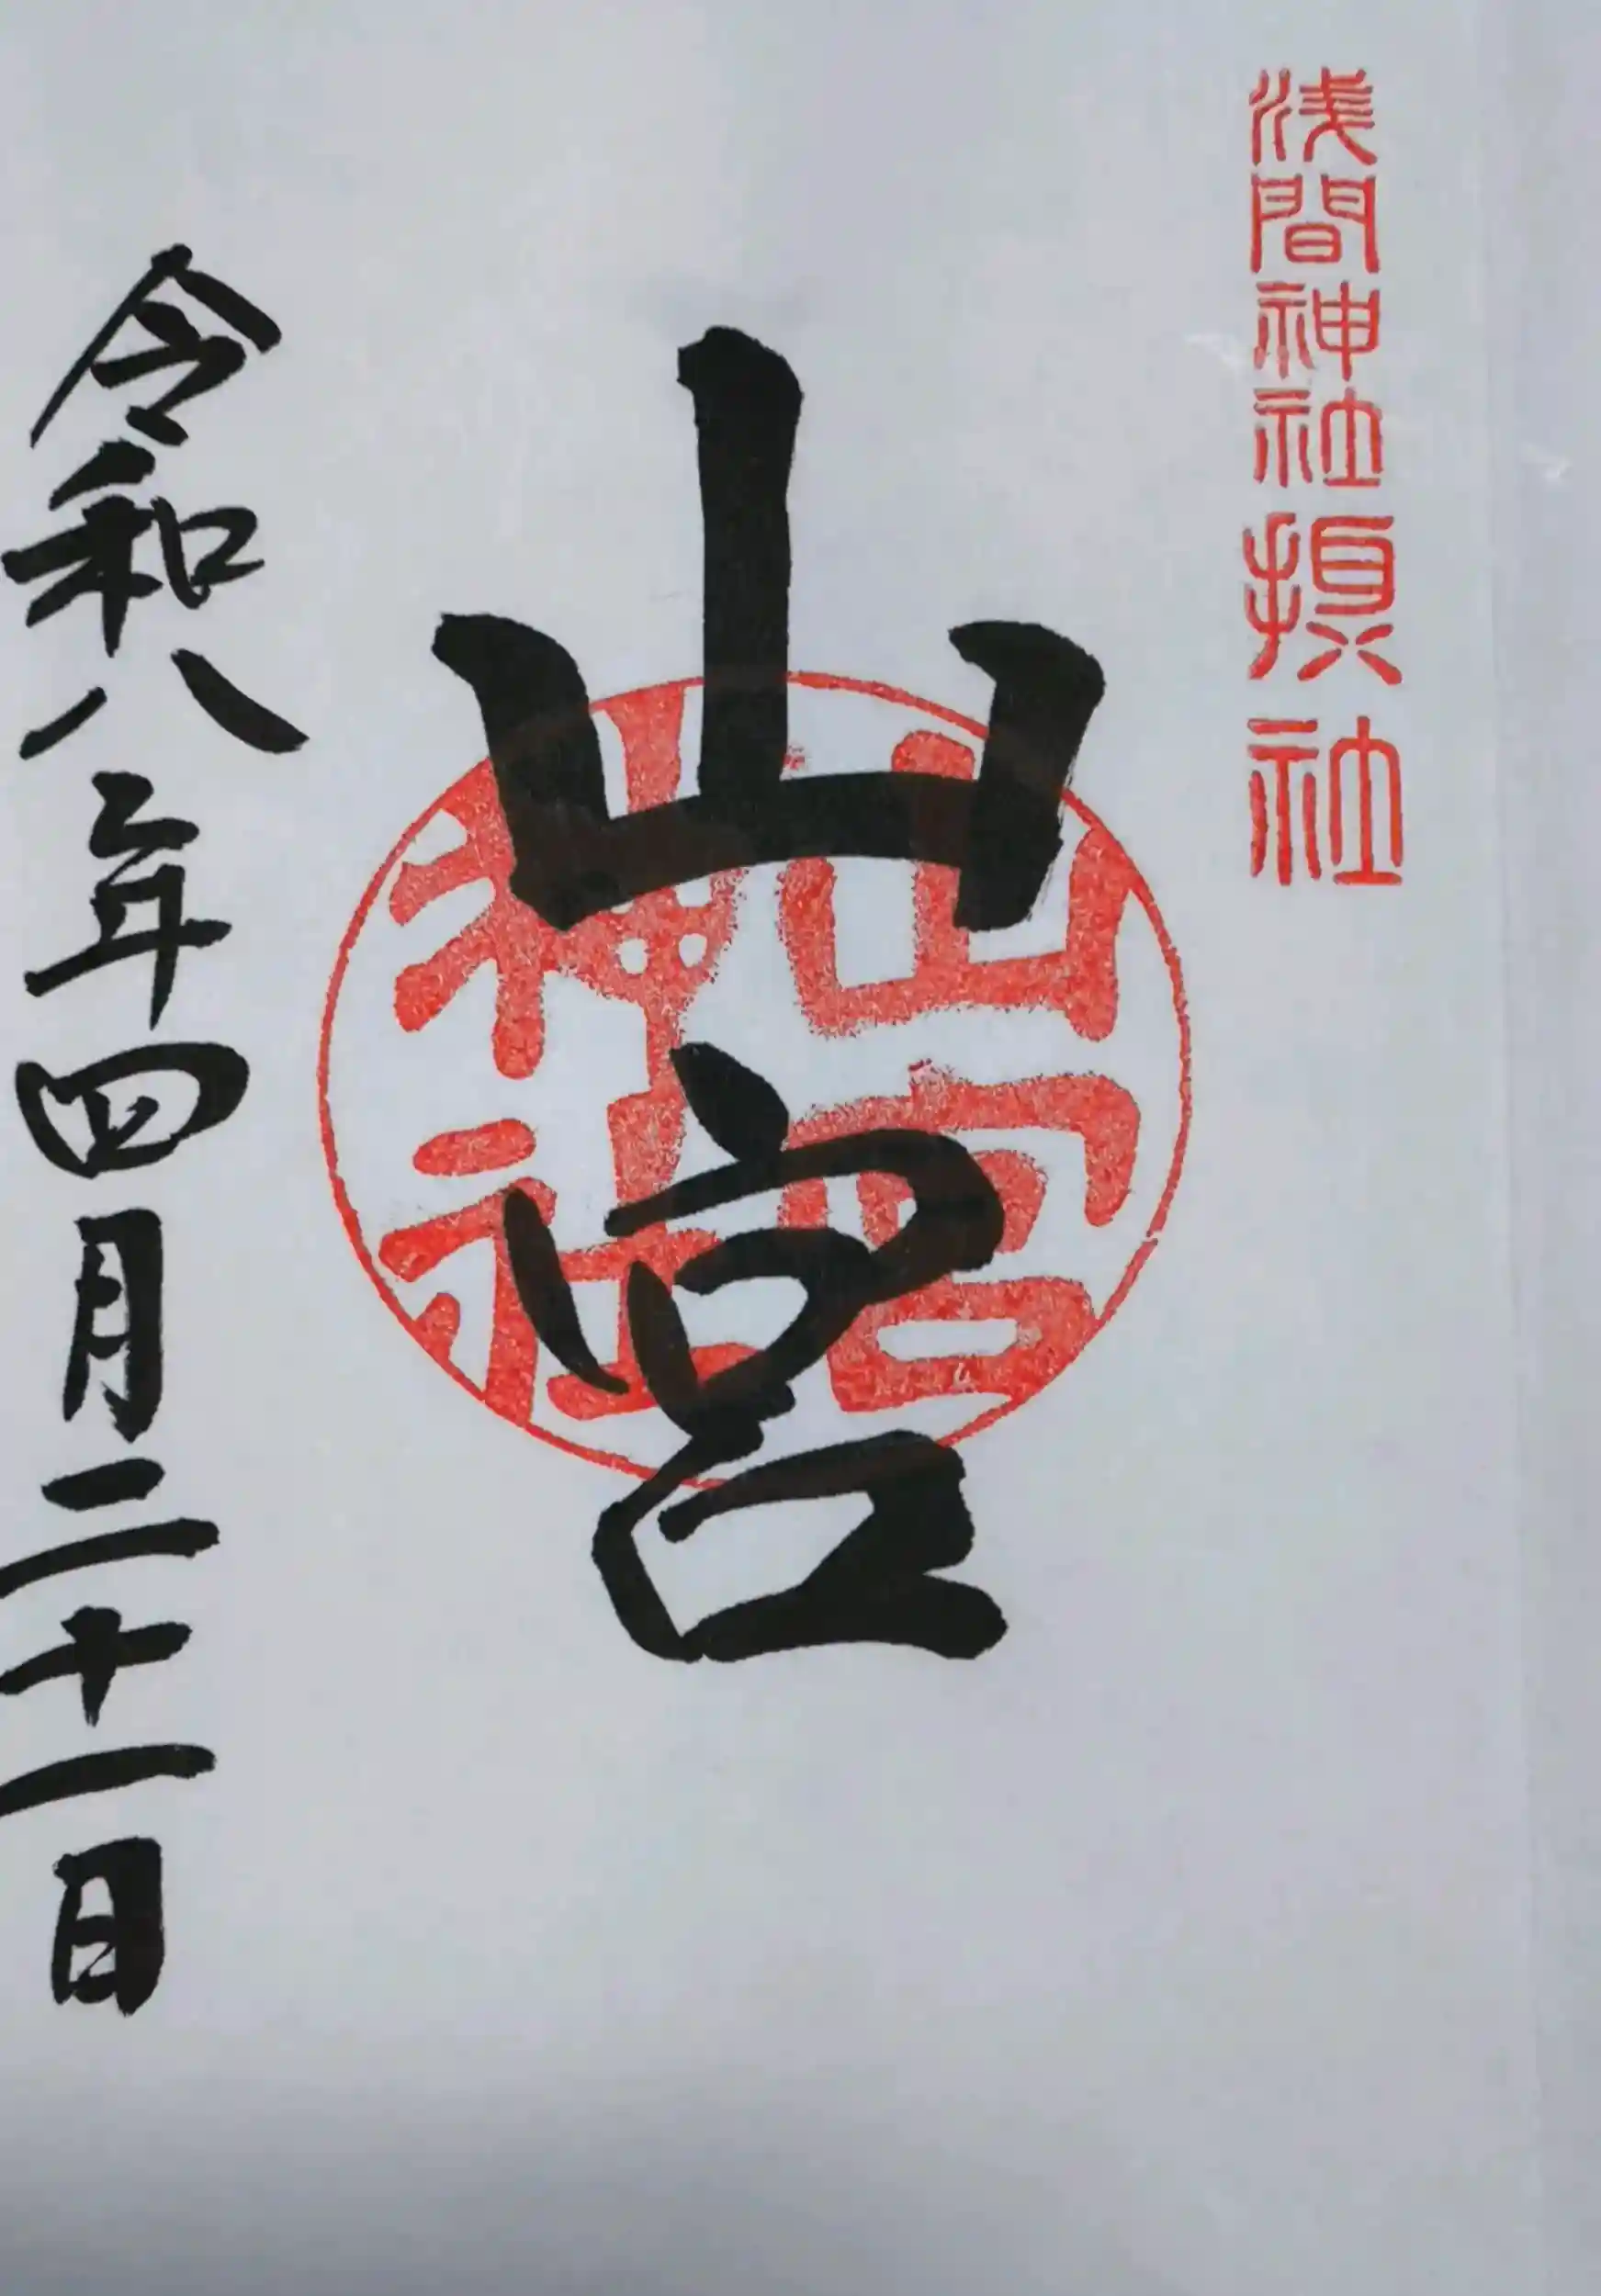 浅間神社摂社
山宮
山宮神社
令和八年四月二十一日